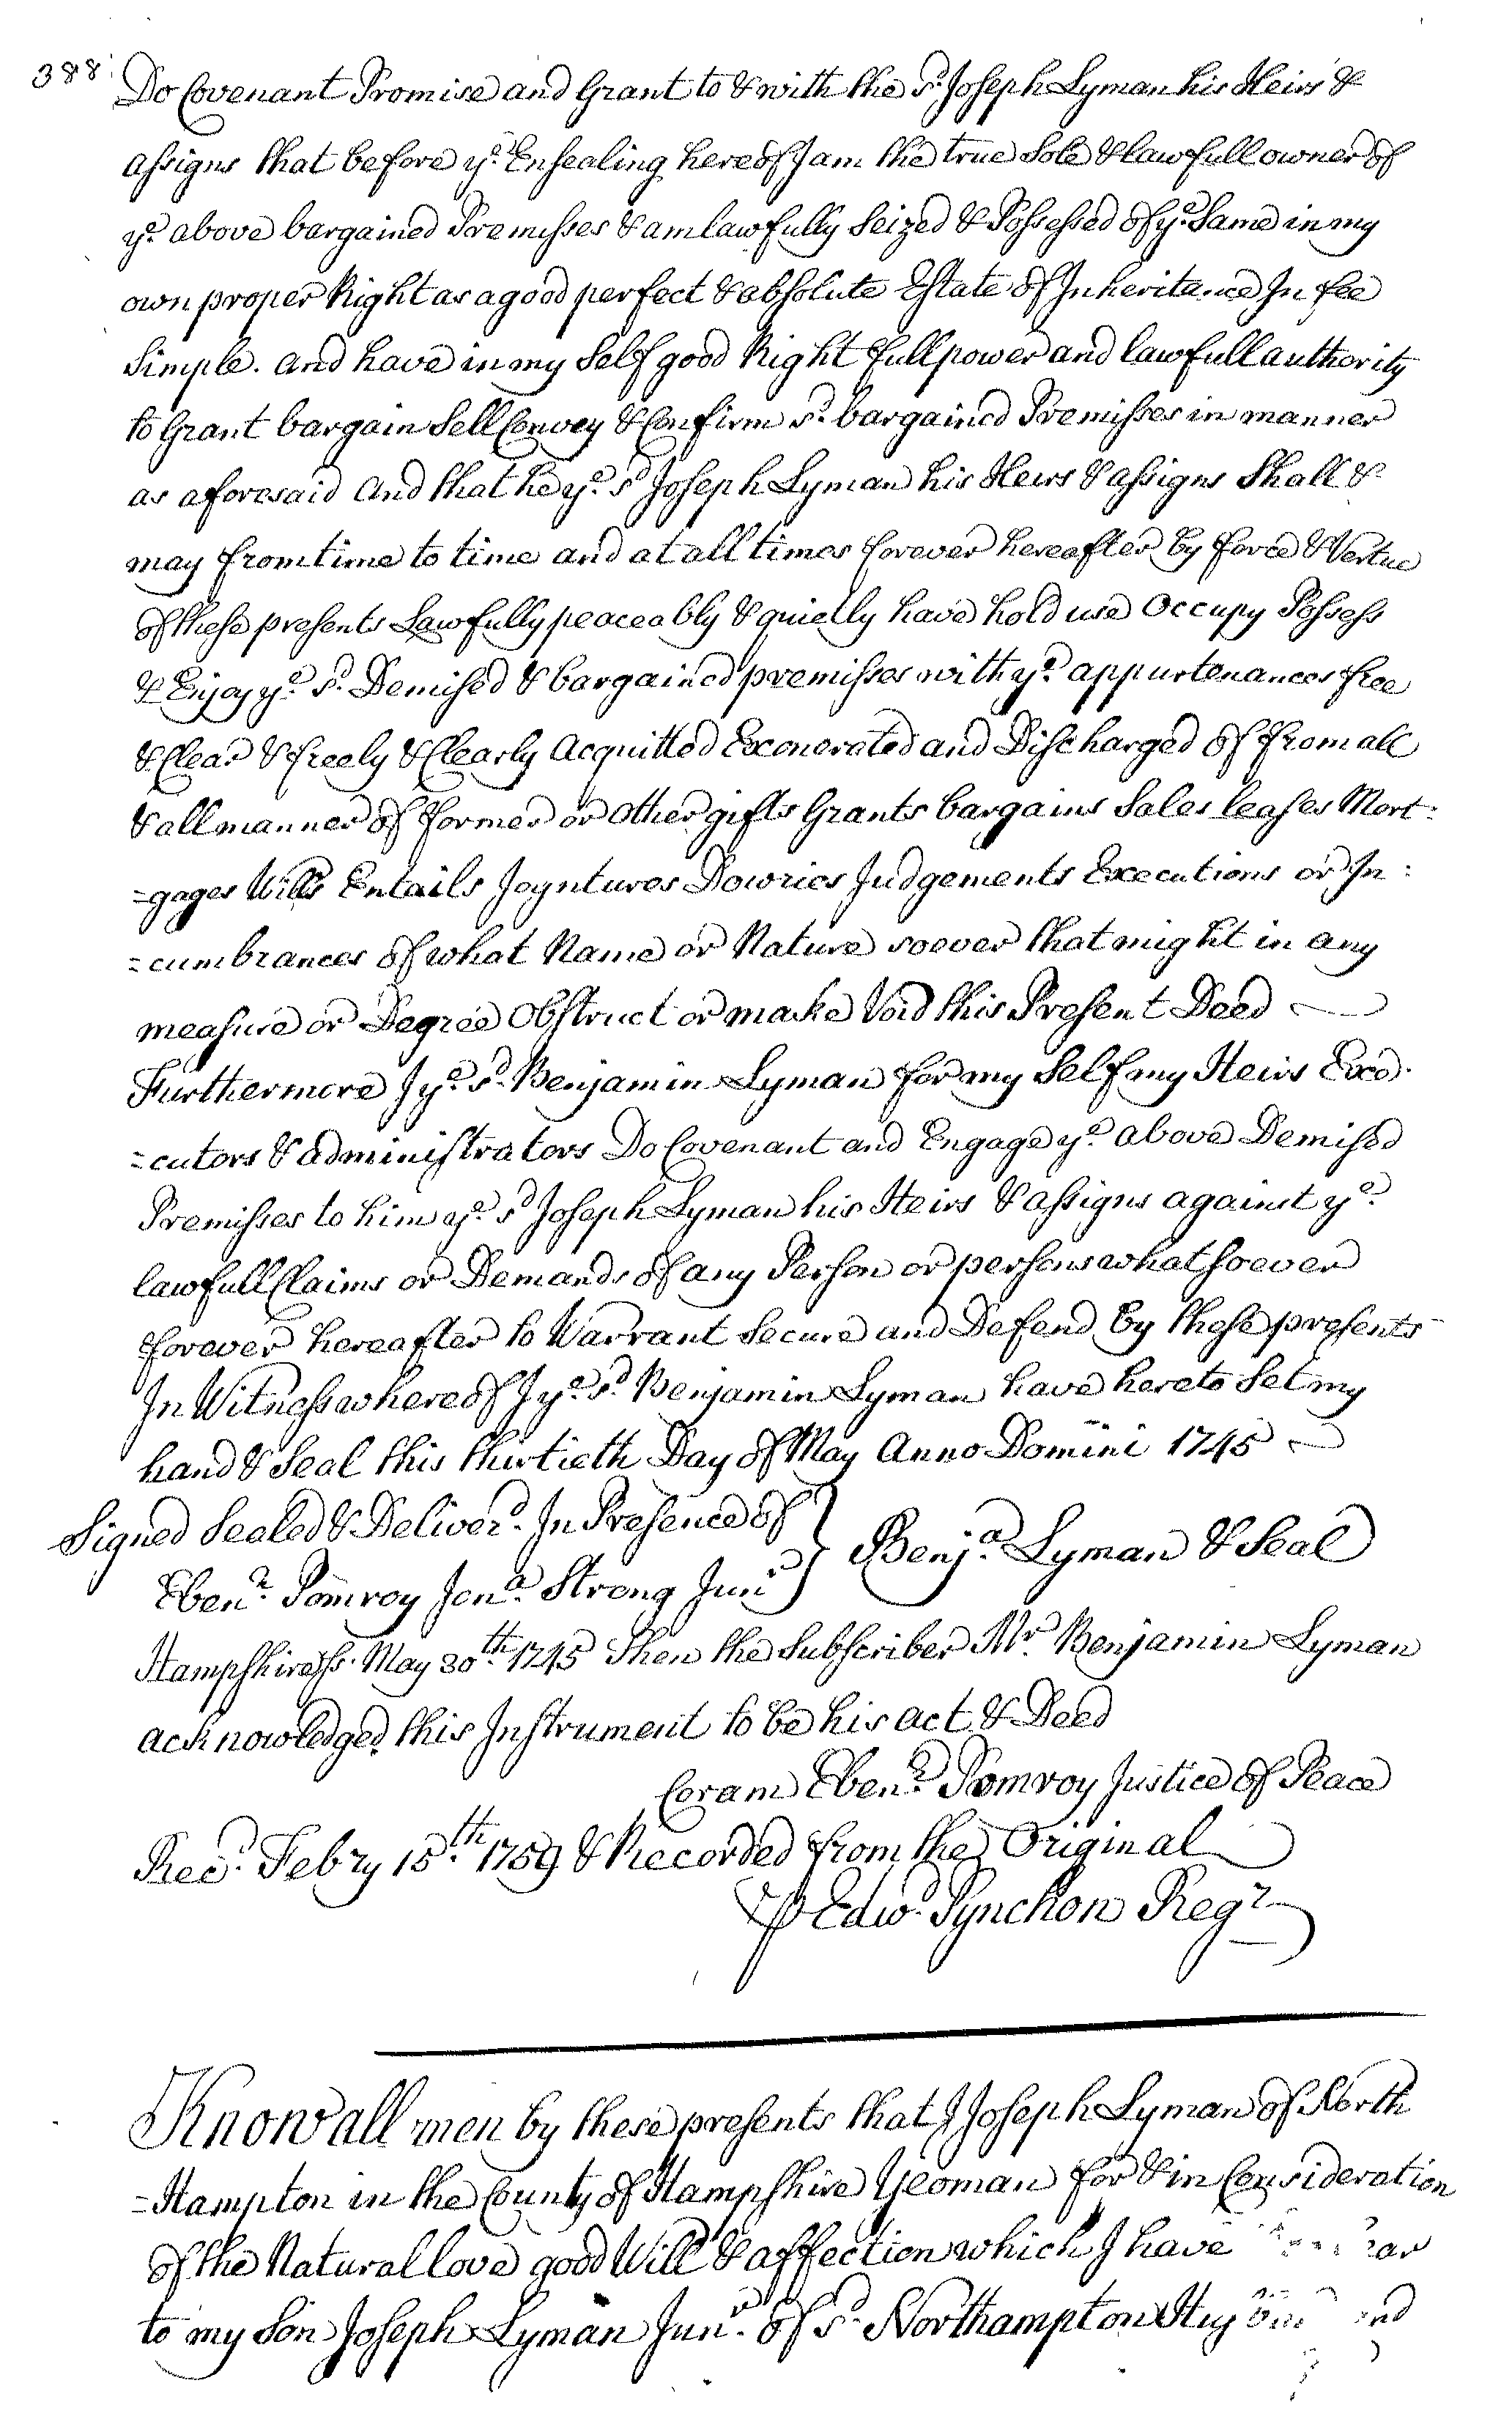 388
Do Covenant Promise and Grant to & with the sd. Joseph Lyman his Heirs &
assigns that before ye. Ensealing hereof I am the true Sole & lawfull owner of
ye. above bargained Premisses & am lawfully Seized & Possessed of ye. Same in my
own proper Right as a good perfect & absolute Estate of Inheritance In fee
Simple. and have in my Self good Right full power and lawfull authority
to Grant bargain Sell Convey & Confirm sd. bargained Premisses in manner
as aforesaid and that he ye. sd Joseph Lyman his Heirs & assigns Shall &
may from time to time and at all times forever hereafter by force & Vertue
of these presents Lawfully peaceably & quietly have hold use Occupy Possess
& Enjoy ye. sd. Demised & bargained premisses with ye. appurtenances free
& Clear & freely & Clearly Acquitted Exonerated and Discharged of from all
& all manner of former or other gifts Grants bargains Sales leases Mort:
=gages Wills Entails Joyntures Dowries Judgements Executions or In:
=cumbrances of what Name or Nature soever that might in any
measure or Degree Obstruct or make Void this Present Deed
Furthermore I ye. sd. Benjamin Lyman for my Self my Heirs Exe.
=cutors & administrators Do Covenant and Engage ye. above Demised
Premisses to him ye. sd Joseph Lyman his Heirs & assigns against ye.
lawfull Claims or Demands of any Person or persons whatsoever
forever hereafter to Warrant Secure and Defend by these presents
In Witness whereof I ye. sd. Benjamin Lyman have hereto Set my
hand & Seal this thirtieth Day of May Anno Domini 1745
Signed Sealed & Deliverd. In Presence of
Benja. Lyman & Seal
Ebenr. Pomroy Jona. Strong Junr
Hampshire ss. May 30th. 1745 Then the Subscriber Mr. Benjamin Lyman
acknowledged this Instrument to be his act & Deed
Coram Ebenr. Pomroy Justice of Peace
Recd. Febry 15th. 1759 & Recorded from the Original
P Edwd. Pynchon Regr
Know all men by these presents that I Joseph Lyman of North
=Hampton in the County of Hampshire Yeoman for & in Consideration
of the Natural love good Will & affection which I have
to my Son Joseph Lyman Junr. of sd. Northampton